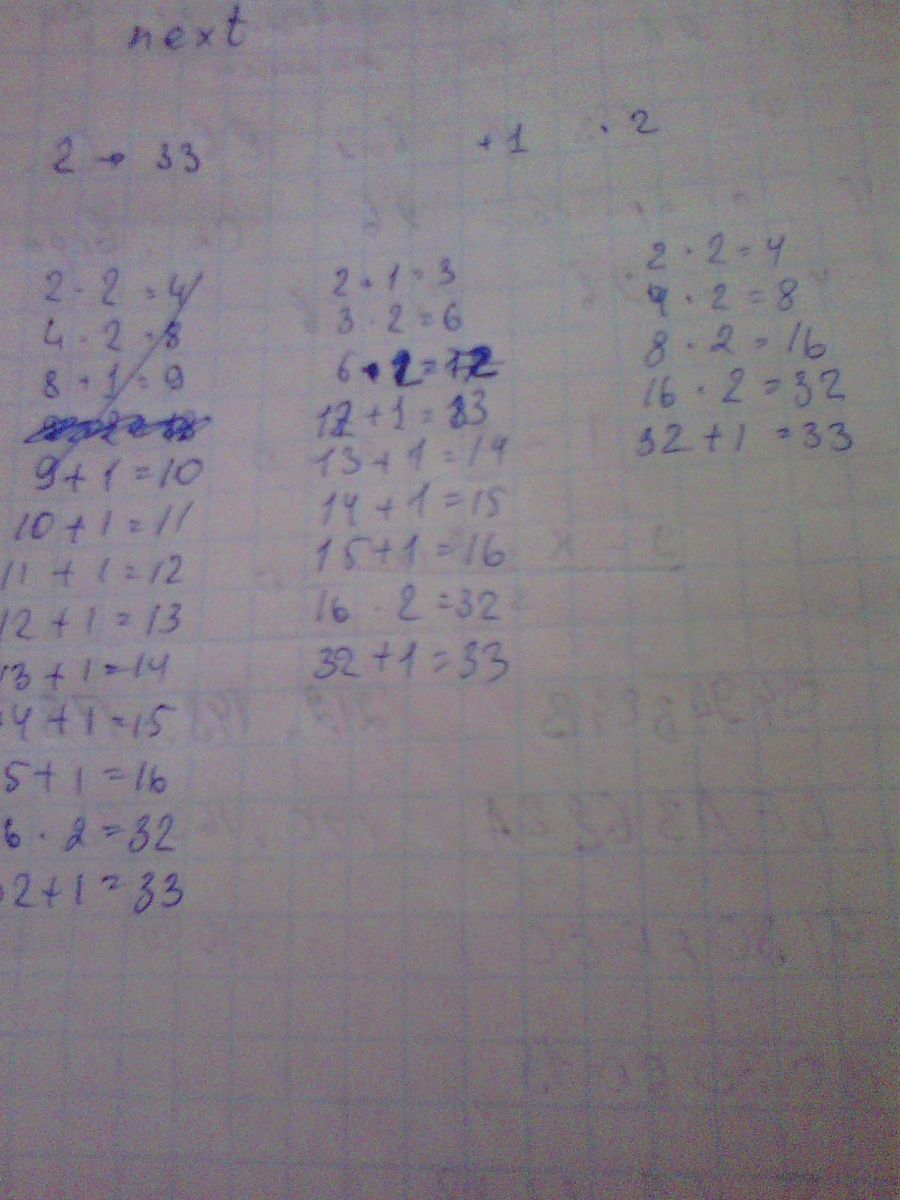 next
2 → 33
+1 · 2
2 · 2 = 4
4 · 2 = 8
8 + 1 = 9
9 + 1 = 10
10 + 1 = 11
11 + 1 = 12
12 + 1 = 13
13 + 1 = 14
4 + 1 = 15
5 + 1 = 16
6 · 2 = 32
2 + 1 = 33
2 + 1 = 3
3 · 2 = 6
6 · 2 = 12
12 + 1 = 13
13 + 1 = 14
14 + 1 = 15
15 + 1 = 16
16 · 2 = 32
32 + 1 = 33
2 · 2 = 4
4 · 2 = 8
8 · 2 = 16
16 · 2 = 32
32 + 1 = 33